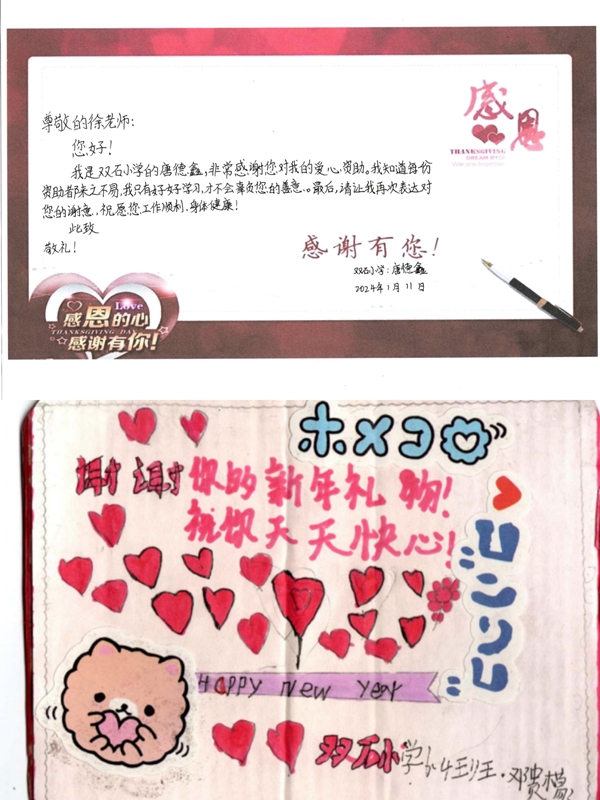 感恩
THANKSGIVING
DREAM STEP
尊敬的徐老师:
您好!
我是双石小学的唐德鑫,非常感谢您对我的爱心资助。我知道每份
资助都来之不易,我只有好好学习,才不会辜负您的善意。最后,请让我再次表达对
您的谢意,祝愿您工作顺利、身体健康!
此致
敬礼!
感谢有您!
双石小学:唐德鑫
2024年1月11日
Love
感恩的心
THANKSGIVING DAY
感谢有你!
谢谢你的新年礼物!
祝你天天快心!
Happy New Year
双石小学